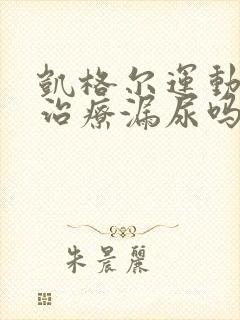 凱格尔運動
治療漏尿吗
朱晨麗